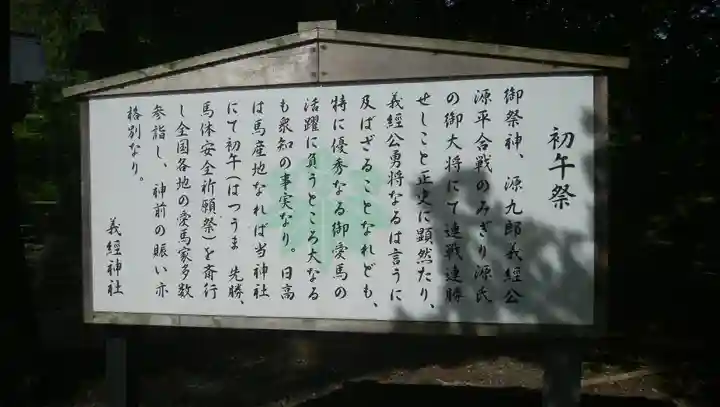 初午祭
御祭神、源九郎義經公
源平合戦のみぎり源氏
の御大将にて連戦連勝
せしこと正史に顕然たり、
義經公勇将なるは言うに
及ばざることなれども、
特に優秀なる御愛馬の
活躍に負うところ大なる
も衆知の事実なり。日高
は馬産地なれば当神社
にて初午(はつうま 先勝、
馬体安全祈願祭)を斎行
し全国各地の愛馬家多数
参詣し、神前の賑い亦
格別なり。
義經神社